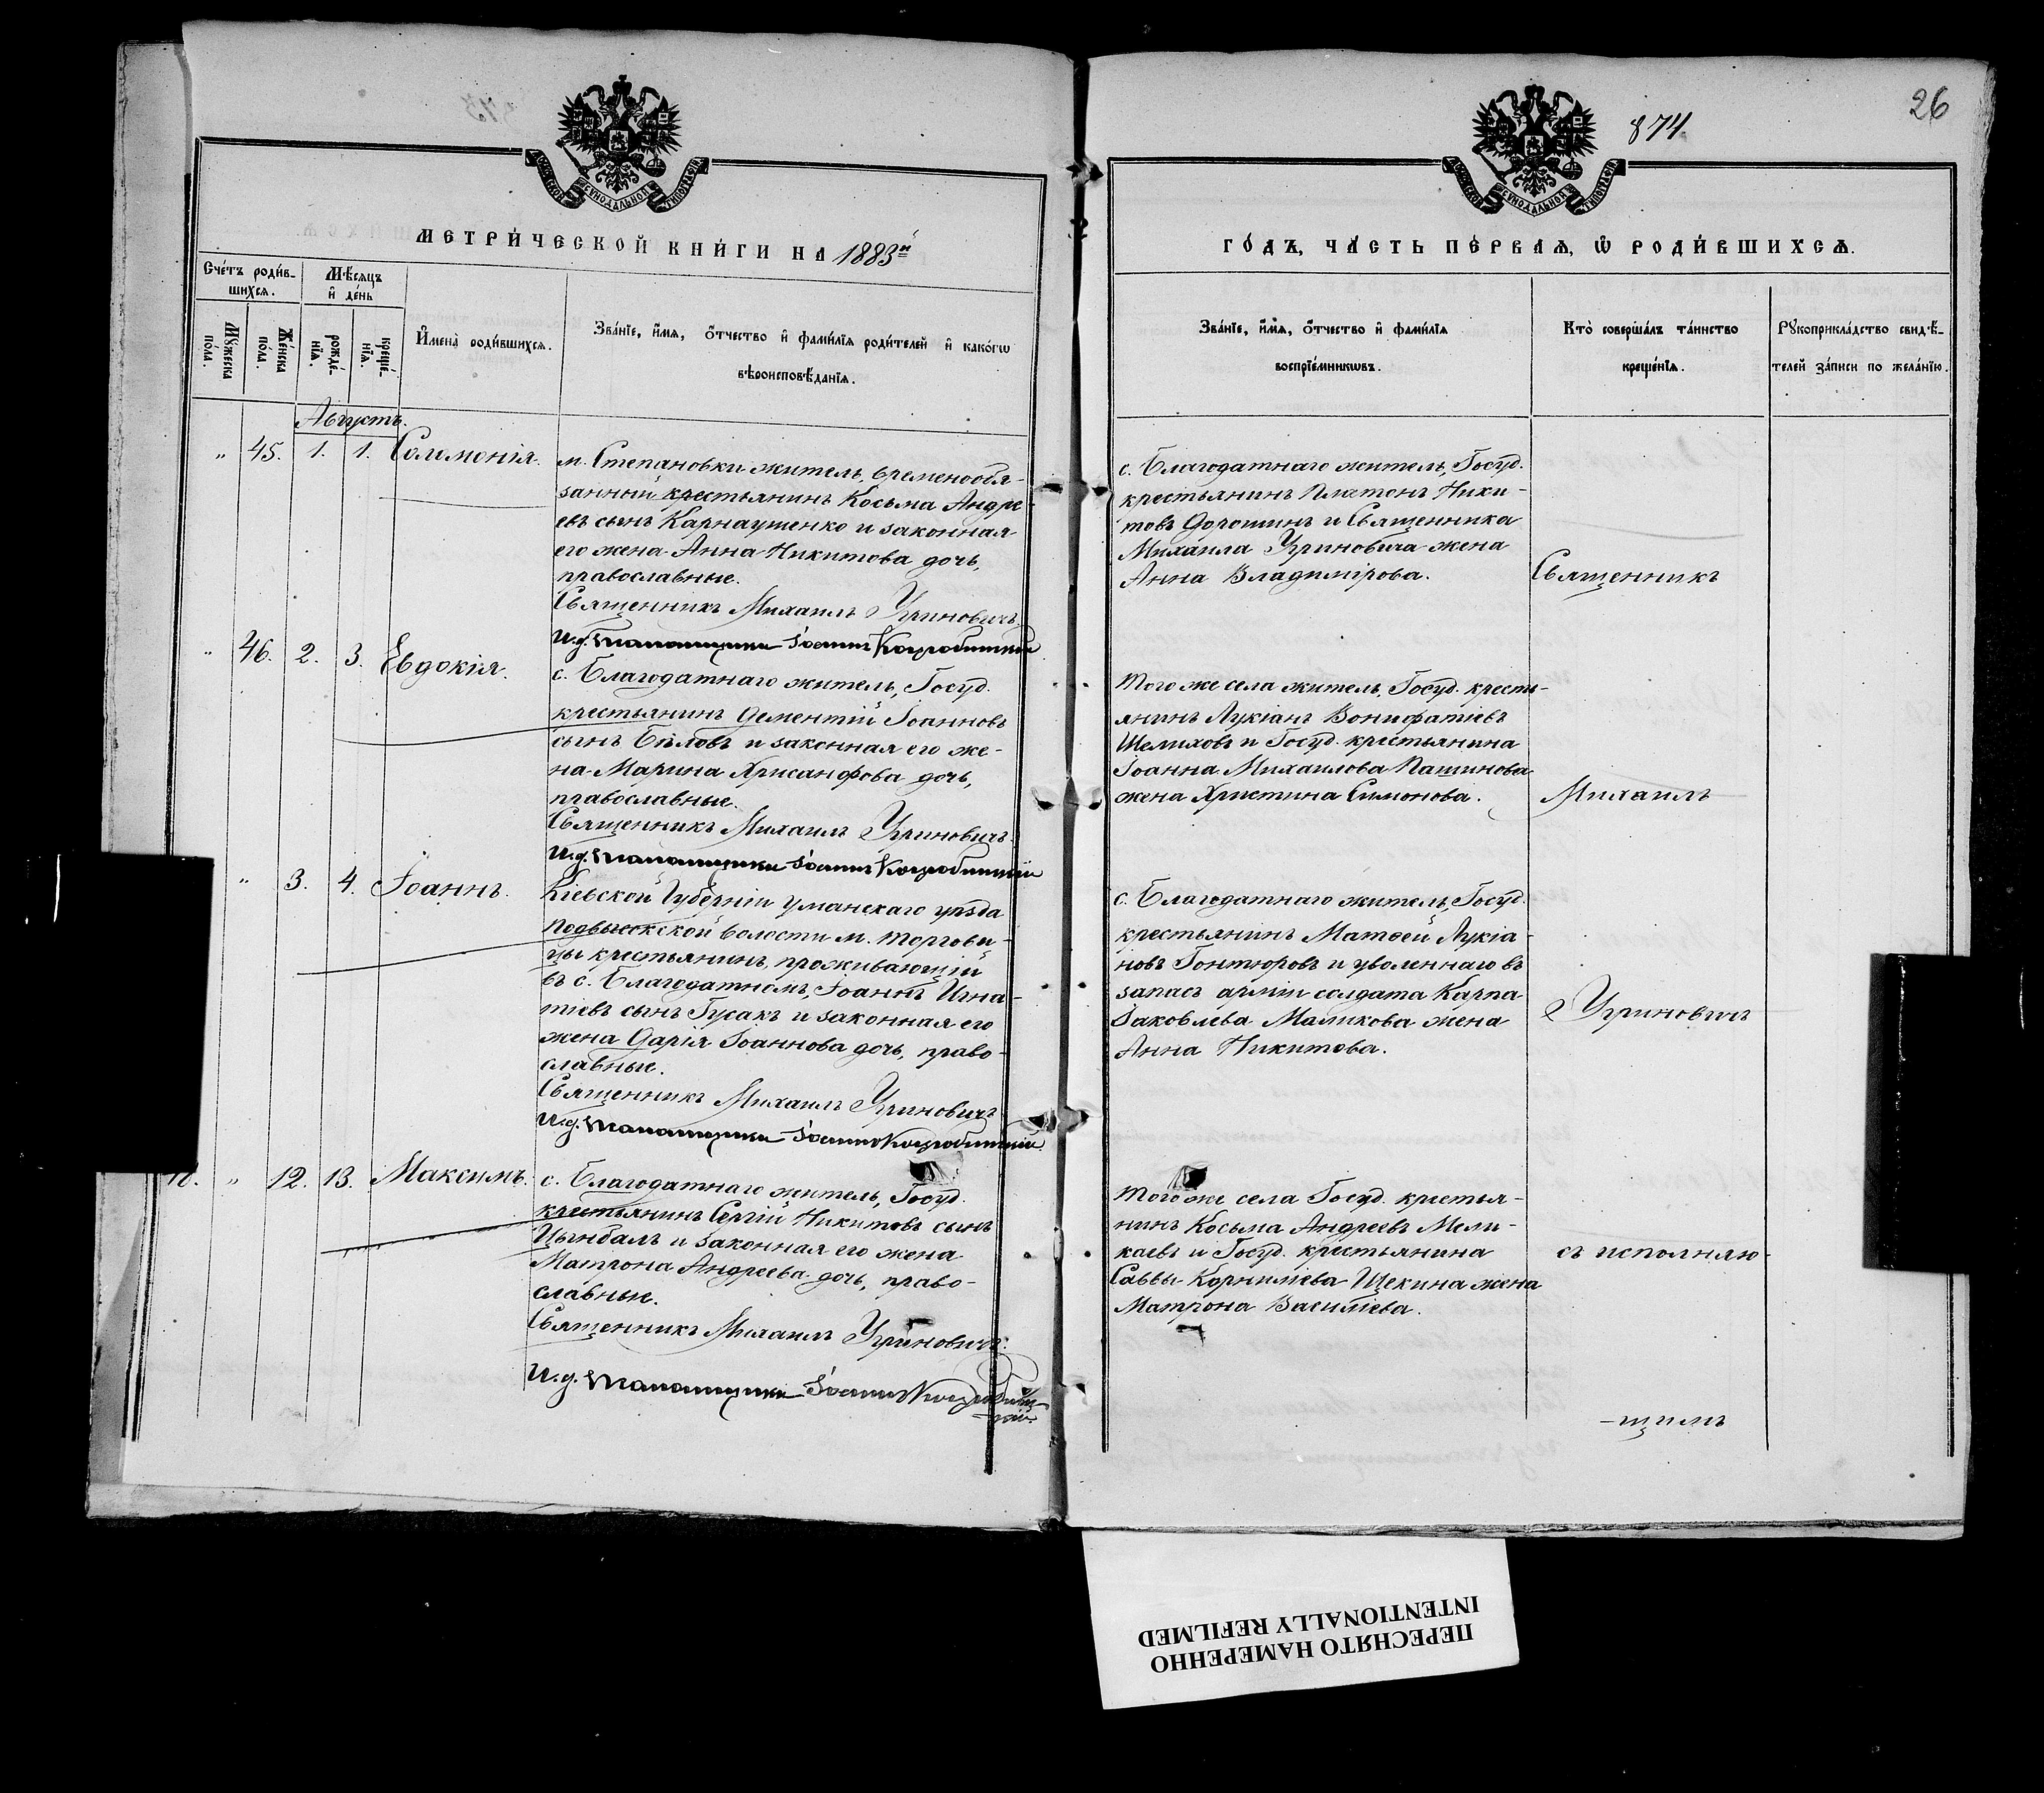 874.
26
МЕТРИ́ЧЕСКОЙ КНИ́ГИ НА 1883й
Счéтъ роди́в-
шихся.
Мѣ́сяцъ
и҆ дéнь
Мꙋ́жеска
по́ла.
Жéнска
по́ла.
рождé-
нїя.
крещé-
нїя.
И҆мена̀ роди́вшихся.
Звáнїе, и҆́мя, ѻ҆́тчество и҆ фами́лїя роди́телей и҆ како́гѡ
вѣроисповѣ́данїя.
Августъ.
„ 45. 1. 1. Соломонія.
м. Степановки житель, временнообя-
занный крестьянинъ Косьма Андре-
евъ сынъ Карнаушенко и законная
его жена Анна Никитова дочь,
православные.
Священникъ Михаилъ Угриновичъ
И.д. псаломщика Іоаннъ
„ 46. 2. 3. Евдокія.
с. Благодатнаго житель, Госуд.
крестьянинъ Дементій Іоанновъ
сынъ Бѣловъ и законная его же-
на Марина Хрисанфова дочь,
православные.
Священникъ Михаилъ Угриновичъ.
И.д. псаломщика Іоаннъ
„ 3. 4. Іоаннъ.
Кіевской Губерніи Уманскаго уѣзда
Подвысокской волости м. Торгови-
цы крестьянинъ, проживающій
въ с. Благодатномъ, Іоаннъ Игна-
тіевъ сынъ Гусакъ и законная его
жена Дарія Іоаннова дочь, право-
славные.
Священникъ Михаилъ Угриновичъ
И.д. псаломщика Іоаннъ
„ 12. 13. Максимъ.
с. Благодатнаго житель, Госуд.
крестьянинъ Сергій Никитовъ сынъ
Цымбалъ и законная его жена
Матрона Андреева дочь, право-
славные.
Священникъ Михаилъ Угриновичъ.
И.д. псаломщика Іоаннъ
ГО́ДЪ, ЧА́СТЬ ПЕ́РВАЯ, Ѽ РОДИ́ВШИХСЯ.
Звáнїе, и҆́мя, ѻ҆́тчество и҆ фами́лїя
воспрїéмникѡвъ.
Кто̀ совершáлъ тáинство
крещéнїя.
Рꙋкоприклáдство свидѣ́-
телей зáписи по желáнїю.
с. Благодатнаго житель, Госуд.
крестьянинъ Платонъ Ники-
товъ Дорошинъ и Священника
Михаила Угриновича жена
Анна Владимірова.
Священникъ
Того же села житель, Госуд. кресть-
янинъ Лукіанъ Вонифатіевъ
Шелиховъ и Госуд. крестьянина
Іоанна Михаилова Пашинова
жена Христина Симонова.
Михаилъ
с. Благодатнаго житель, Госуд.
крестьянинъ Матѳей Лукіа-
новъ Гонтюровъ и уволеннаго въ
запасъ арміи солдата Карпа
Іаковлева Маликова жена
Анна Никитова.
Угриновичъ
Того же села Госуд. крестья-
нинъ Косьма Андреевъ Мели-
каевъ и Госуд. крестьянина
Саввы Корниліева Щекина жена
Матрона Василіева.
съ исполняю-
-щимъ
ПЕРЕСНЯТО НАМЕРЕННО
INTENTIONALLY REFILMED